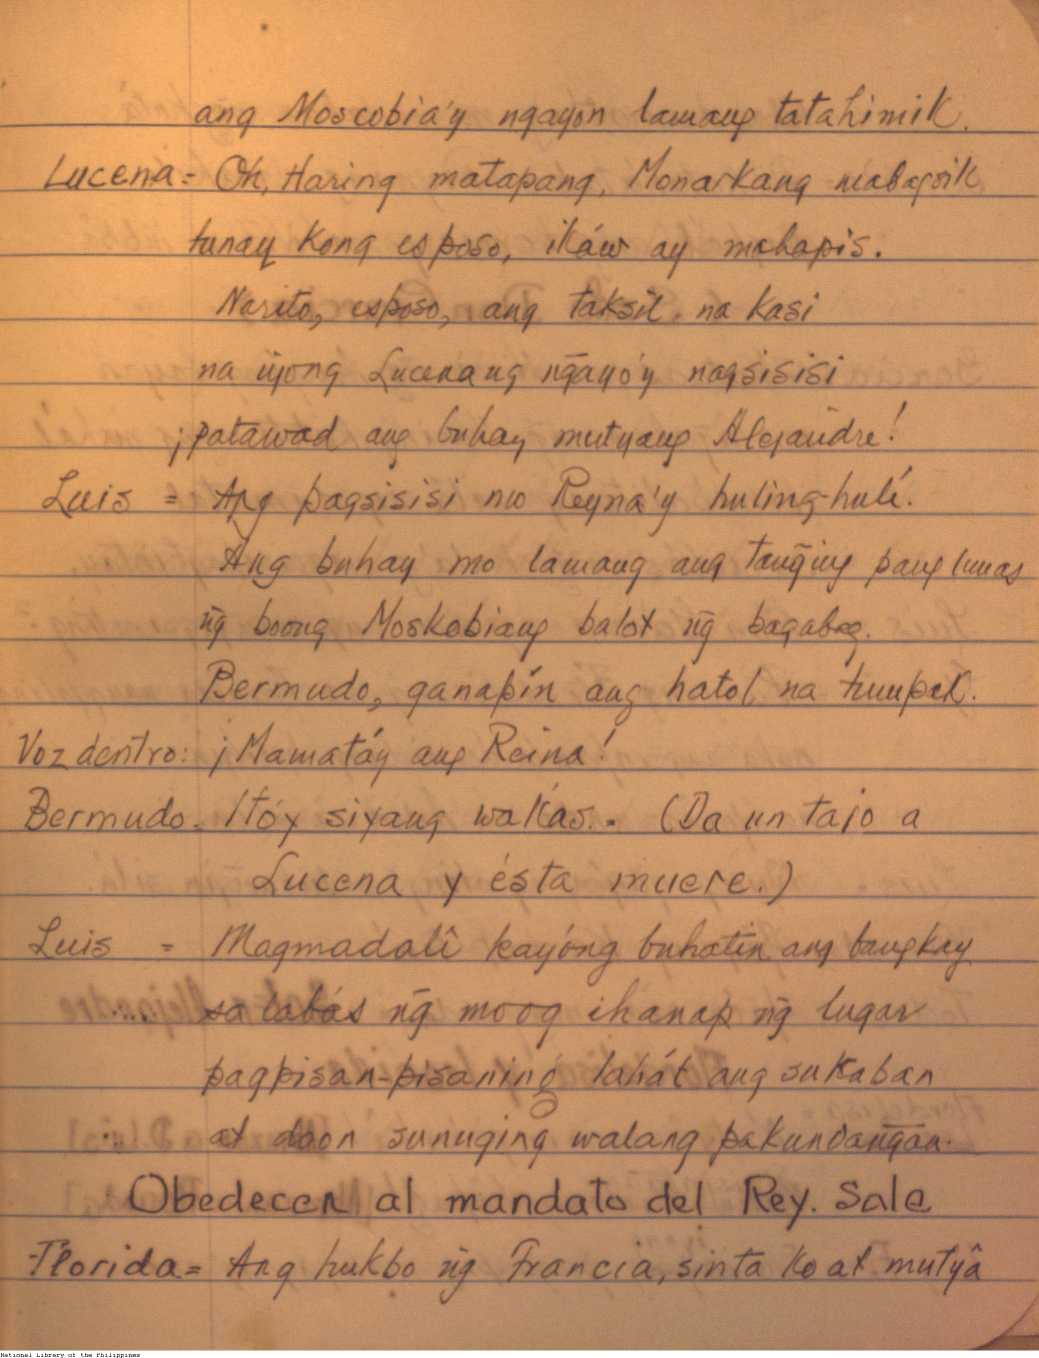 ang Moscobia'y ngayon lamang tatahimik.
Lucena = Oh, Haring matapang, Monarkang mabagsik
tunay kong esposo, ikáw ay mahapis.
Narito, esposo, ang taksil na kasi
na iyong Lucenang n̄gayo'y nagsisisi
¡patawad ang buhay mutyang Alejandre!
Luis = Ang pagsisisi mo Reyna'y huling-hulí.
Ang buhay mo lamang ang tan̄ging pang lunas
n̄g boong Moskobiang balot n̄g bagabag.
Bermudo, ganapin ang hatol na tumpak.
Voz dentro: ¡Mamatáy ang Reina!
Bermudo. Itóy siyang wakás.. (Da un tajo a
Lucena y ésta muere.)
Luis = Magmadalî kayóng buhatin ang bangkay
sa labás n̄g moog ihanap n̄g lugar
pagpisan-pisaning lahát ang sukaban
at doon sunuging walang pakundan̄gan.
Obedecen al mandato del Rey. Sale
Florida = Ang hukbo n̄g Francia, sinta ko at mutyâ
National Library of the Philippines